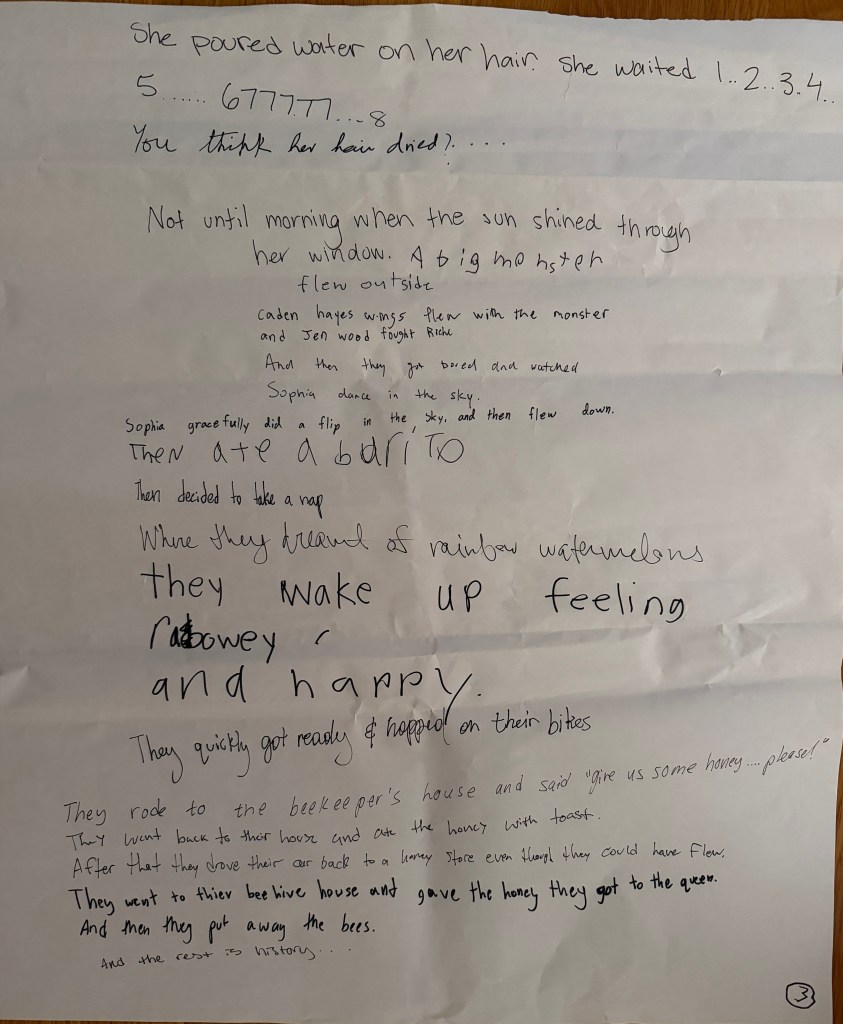 She poured water on her hair. She waited 1..2..3.4..
5...... 677777...8
You think her hair dried?....
Not until morning when the sun shined through
her window. A big monster
flew outside
Caden hayes wings flew with the monster
and Jen wood fought Richi
And then they got bored and watched
Sophia dance in the sky.
Sophia gracefully did a flip in the sky, and then flew down.
Then ate a bariTO
Then decided to take a nap
Where they dreamt of rainbow watermelons
they wake up feeling
and happy.
They quickly got ready & hopped on their bikes
They rode to the beekeeper's house and said "give us some honey.... please!"
They went back to their house and ate the honey with toast.
After that they drove their car back to a honey store even though they could have flew.
They went to thier bee hive house and gave the honey they got to the queen.
And then they put away the bees.
And the rest is history....
3